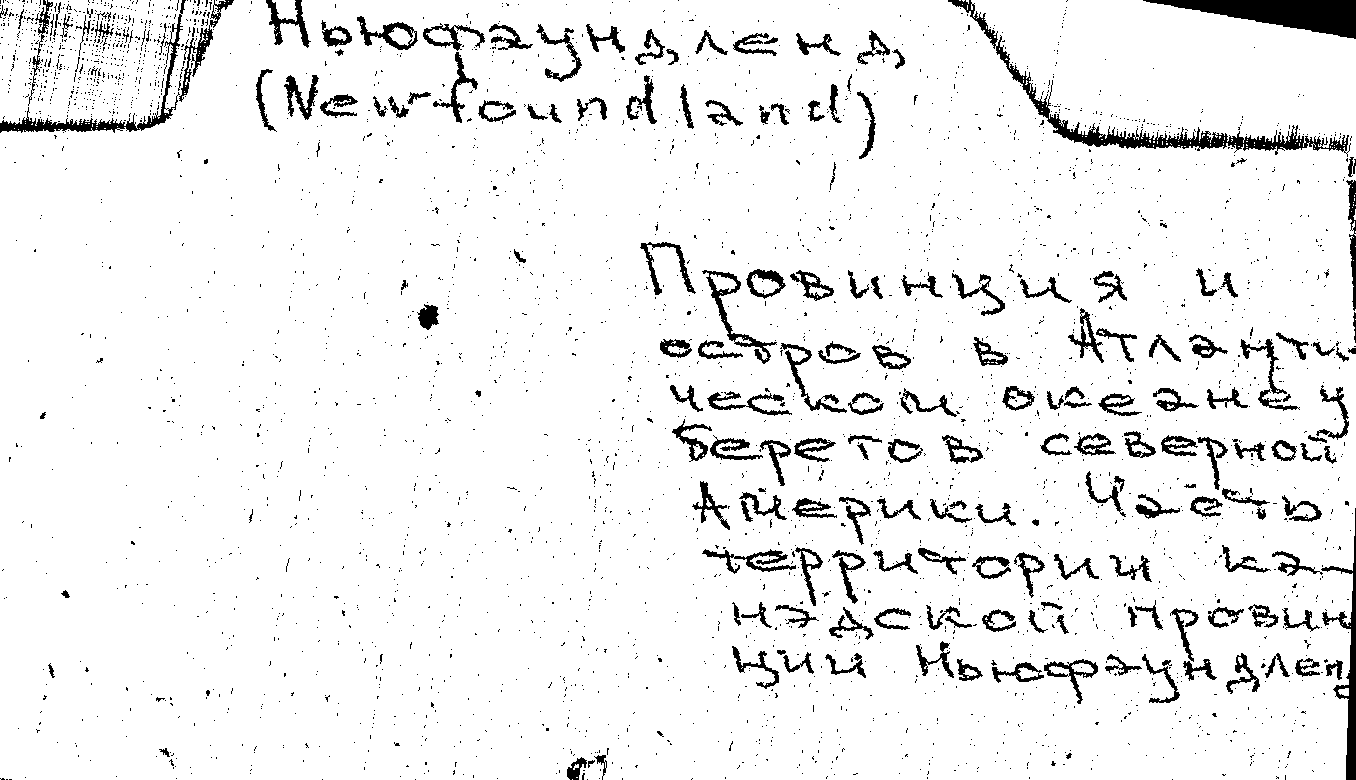 Ньюфаундленд
(Newfoundland)
Провинция и
остров в Атланти-
ческом океане у
берегов северной
Америки. Часть
территории ка-
надской провин
ции Ньюфаундленд